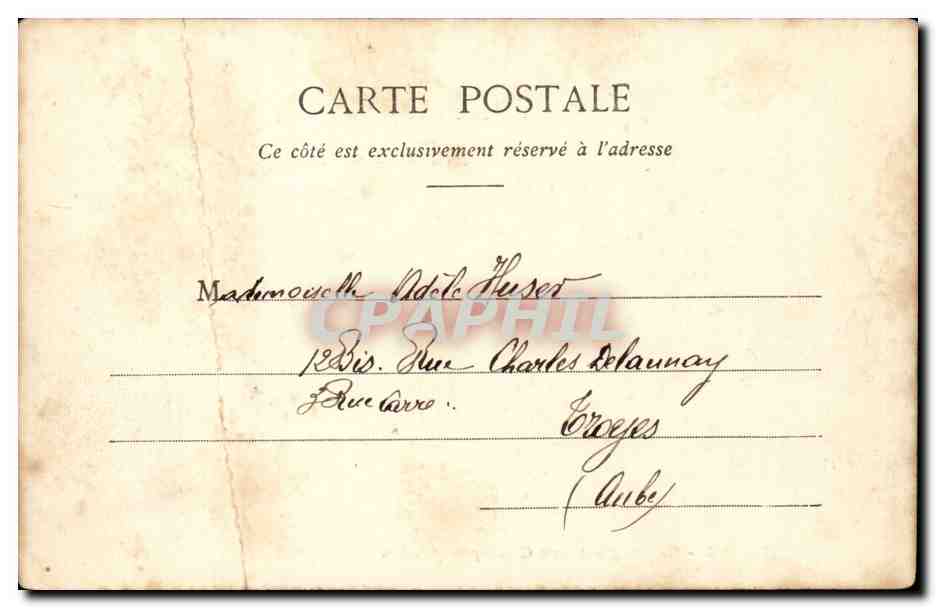 CARTE POSTALE
Ce côté est exclusivement réservé à l'adresse
Mademoiselle Adèle Huser
CPAPHIL
12 Bis. Rue Charles Delaunay
3 Rue Carré.
Troyes
(Aube)